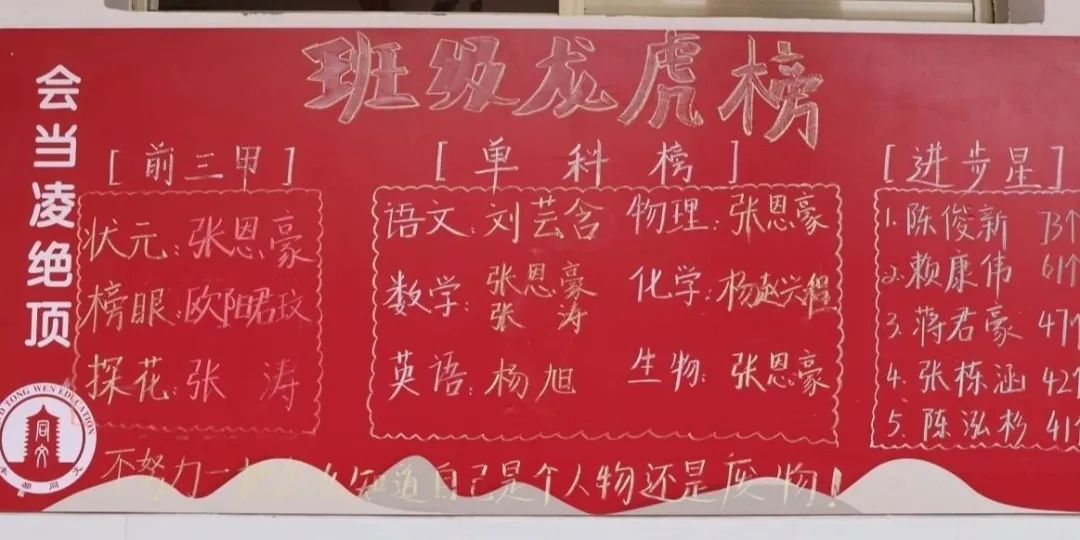 班级龙虎榜
会当凌绝顶
[前三甲]
状元:张恩豪
榜眼:欧阳珺玟
探花:张涛
[单科榜]
语文:刘芸含 物理:张恩豪
数学:张恩豪 张涛 化学:杨赵兴程
英语:杨旭 生物:张恩豪
[进步星]
1.陈俊新 73个
2.赖康伟 61个
3.蒋君豪 47个
4.张栋涵 42个
5.陈泓杉 41个
不努力一 知道自己是个人物还是废物!
TONG WEN EDUCATION
同文